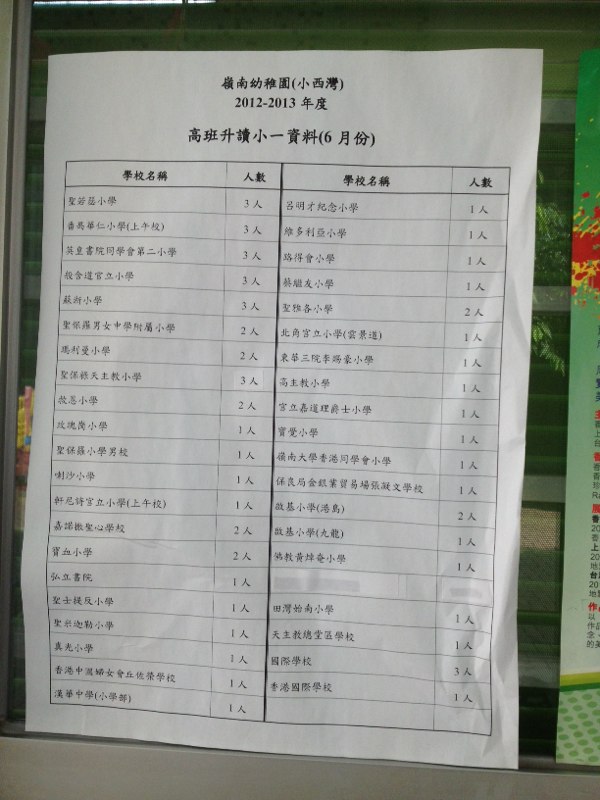 嶺南幼稚園(小西灣)
2012-2013 年度
高班升讀小一資料(6 月份)
學校名稱 人數 學校名稱 人數
聖若瑟小學 3 人 呂明才紀念小學 1 人
番禺華仁小學(上午校) 3 人 維多利亞小學 1 人
英皇書院同學會第二小學 3 人 路得會小學 1 人
般含道官立小學 3 人 蔡繼友小學 1 人
蘇浙小學 3 人 聖雅各小學 2 人
聖保羅男女中學附屬小學 2 人 北角官立小學(雲景道) 1 人
瑪利曼小學 2 人 東華三院李賜豪小學 1 人
聖保祿天主教小學 3 人 高主教小學 1 人
救恩小學 2 人 官立嘉道理爵士小學 1 人
玫瑰崗小學 1 人 寶覺小學 1 人
聖保羅小學男校 1 人 嶺南大學香港同學會小學 1 人
喇沙小學 1 人 保良局金銀業貿易場張凝文學校 1 人
軒尼詩官立小學(上午校) 1 人 啟基小學(港島) 2 人
嘉諾撒聖心學校 2 人 啟基小學(九龍) 1 人
寶血小學 2 人 佛教黃焯菴小學 1 人
弘立書院 1 人
聖士提反小學 1 人 田灣始南小學 1 人
聖米迦勒小學 1 人 天主教總堂區學校 1 人
真光小學 1 人 國際學校 3 人
香港中國婦女會丘佐榮學校 1 人 香港國際學校 1 人
漢華中學(小學部) 1 人